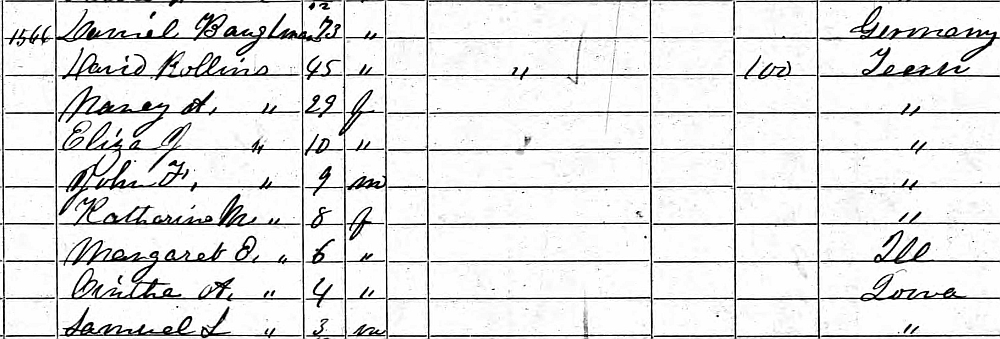 1566 Daniel Baughman 73 " Germany
David Rollins 45 " " 100 Tenn
Nancy A. " 29 f "
Eliza J " 10 " "
John F. " 9 m "
Katharine M. " 8 f "
Margaret E. " 6 " Ill
Cinthe A. " 4 " Iowa
Samuel L " 3 m "